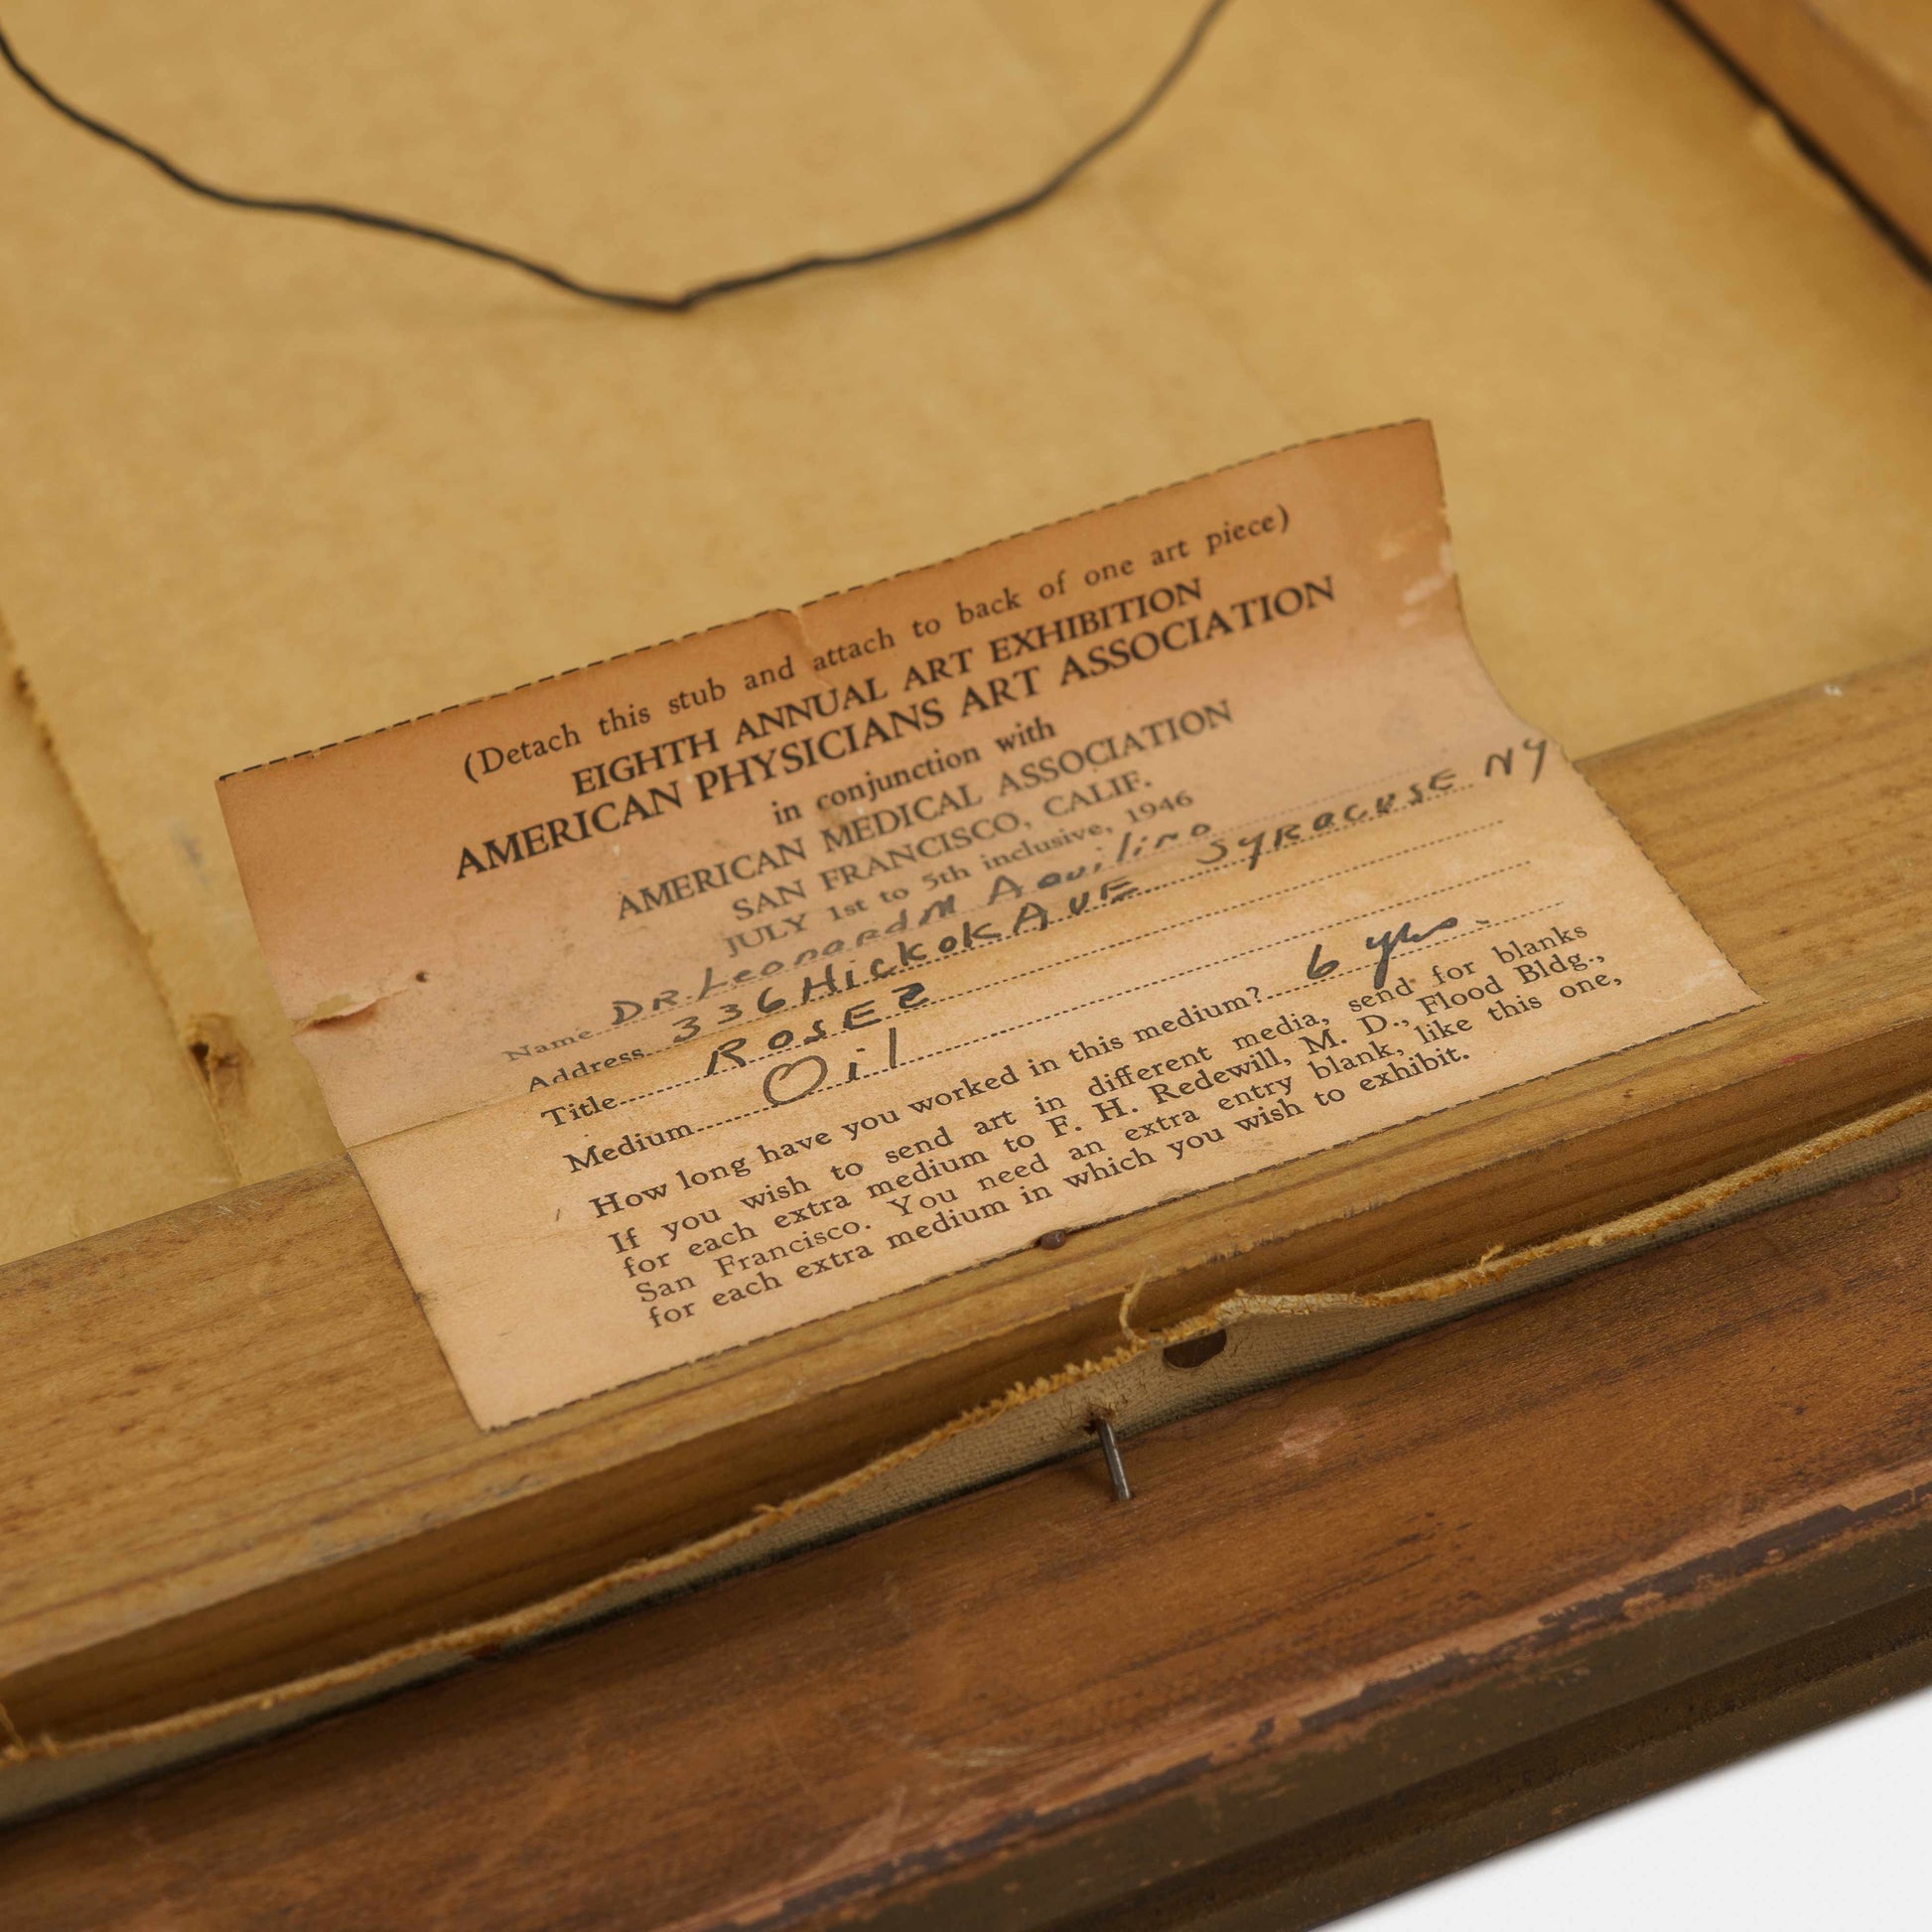 (Detach this stub and attach to back of one art piece)
EIGHTH ANNUAL ART EXHIBITION
AMERICAN PHYSICIANS ART ASSOCIATION
in conjunction with
AMERICAN MEDICAL ASSOCIATION
SAN FRANCISCO, CALIF.
JULY 1st to 5th inclusive, 1946
Name DR. Leonard M Aquilino
Address 336 Hickok AVE SYRACUSE NY
Title ROSES
Medium Oil
How long have you worked in this medium? 6 yrs.
If you wish to send art in different media, send for blanks
for each extra medium to F. H. Redewill, M. D., Flood Bldg.,
San Francisco. You need an extra entry blank, like this one,
for each extra medium in which you wish to exhibit.